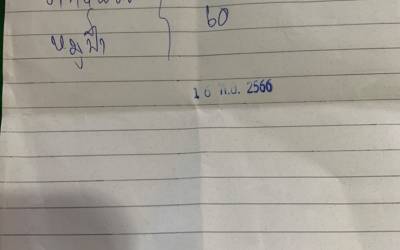 หมูป่า
60
16 ก.ย. 2566